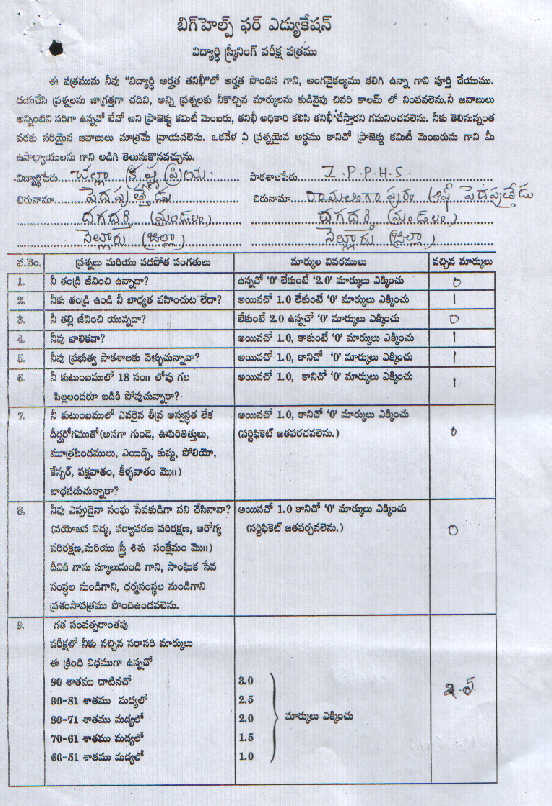 బిగ్‌హెల్ప్ ఫర్ ఎడ్యుకేషన్
విద్యార్థి స్క్రీనింగ్ పరీక్ష పత్రము
ఈ పత్రమును నీవు "విద్యార్థి అర్హత తనిఖీ"లో అర్హత పొందిన గాని, అంగవైకల్యము కలిగి ఉన్నా గాని పూర్తి చేయుము.
దయచేసి ప్రశ్నలను జాగ్రత్తగా చదివి, అన్ని ప్రశ్నలకు నీకొచ్చిన మార్కులను కుడివైపు చివరి కాలమ్ లో నింపవలెను.నీ జవాబులు
అన్నింటిని సరిగా ఉన్నవో లేవో అని ప్రాజెక్టు కమిటీ మెంబరు, తనిఖీ అధికారి కలిసి తనిఖీచేస్తారని గమనించవలెను. నీకు తెలిసినంత
వరకు సరియైన జవాబులు మాత్రమే వ్రాయవలెను. ఒకవేళ ఏ ప్రశ్నయైన అర్థము కానిచో ప్రాజెక్టు కమిటీ మెంబరును గాని మీ
ఉపాధ్యాయులను గాని అడిగి తెలుసుకొనవచ్చును.
విద్యార్థిపేరు చల్లా కృష్ణ ప్రియ పాఠశాలపేరు Z.P.P.H.S
చిరునామా చిరునామా
దగదర్తి (మండలం) దగదర్తి (మండలం)
నెల్లూరు (జిల్లా) నెల్లూరు (జిల్లా)
వ.నెం. ప్రశ్నలు మరియు పరిశోధ సంగతులు మార్కుల వివరములు వచ్చిన మార్కులు
1. నీ తండ్రి జీవించి ఉన్నాడా? ఉన్నచో '0' లేకుంటే '2.0' మార్కులు ఎక్కించు 0
2. నీకు తండ్రి ఉండి నీ బాధ్యత వహించుట లేదా? అయినచో 1.0 లేకుంటే '0' మార్కులు ఎక్కించు 1
3. నీ తల్లి జీవించి యున్నదా? లేకుంటే 2.0 ఉన్నచో '0' మార్కులు ఎక్కించు 0
4. నీవు బాలికవా? అయినచో 1.0, కాకుంటే '0' మార్కులు ఎక్కించు 1
5. నీవు ప్రభుత్వ పాఠశాలకు వెళ్ళుచున్నావా? అయినచో 1.0, కానిచో '0' మార్కులు ఎక్కించు 1
6. నీ కుటుంబములో 18 సం॥ లోపు గల అయినచో 1.0, కానిచో '0' మార్కులు ఎక్కించు 1
పిల్లలందరూ బడికి పోవుచున్నారా?
7. నీ కుటుంబములో ఎవరైన తీవ్ర అస్వస్థత లేక అయినచో 1.0, కానిచో '0' మార్కులు ఎక్కించు 0
దీర్ఘరోగముతో(అనగా గుండె, ఊపిరితిత్తులు, (సర్టిఫికెట్ జతపరచవలెను.)
మూత్రపిండములు, ఎయిడ్స్, కుష్ఠు, పోలియో,
కేన్సర్, పక్షవాతం, కీళ్ళవాతం మొ॥)
బాధపడుచున్నారా?
8. నీవు ఎప్పుడైనా సంఘ సేవకుడిగా పని చేసినావా? అయినచో 1.0 కానిచో '0' మార్కులు ఎక్కించు 0
(వయోజన విద్య, పర్యావరణ పరిరక్షణ, ఆరోగ్య (సర్టిఫికెట్ జతపరచవలెను.)
పరిరక్షణ,మరియు స్త్రీ శిశు సంక్షేమం మొ॥)
దీనికి గాను స్కూలునుండి గాని, సాంఘిక సేవ
సంస్థల నుండిగాని, ధర్మసంస్థల నుండిగాని
ప్రశంసాపత్రము పొందిఉండవలెను.
9. గత సంవత్సరాంతపు
పరీక్షలో నీకు వచ్చిన సరాసరి మార్కులు
ఈ క్రింది విధముగా ఉన్నచో
90 శాతము దాటినచో 3.0
90-81 శాతము మధ్యలో 2.5
80-71 శాతము మధ్యలో 2.0 మార్కులు ఎక్కించు
70-61 శాతము మధ్యలో 1.5
60-51 శాతము మధ్యలో 1.0